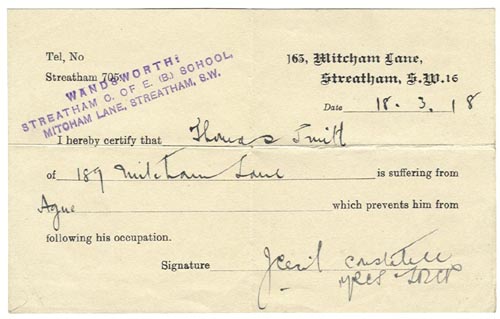 Tel, No
Streatham 705.
WANDSWORTH:
STREATHAM C. OF E. (B.) SCHOOL,
MITCHAM LANE, STREATHAM, S.W.
165, Mitcham Lane,
Streatham, S.W.16
Date 18.3.18
I hereby certify that Thomas
of 189 Mitcham Lane is suffering from
Ague which prevents him from
following his occupation.
Signature J Cecil
MRCS LRCP